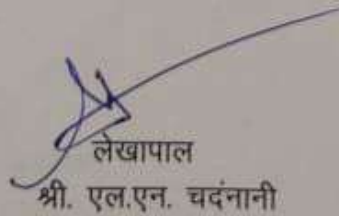 लेखापाल
श्री. एल.एन. चदंनानी